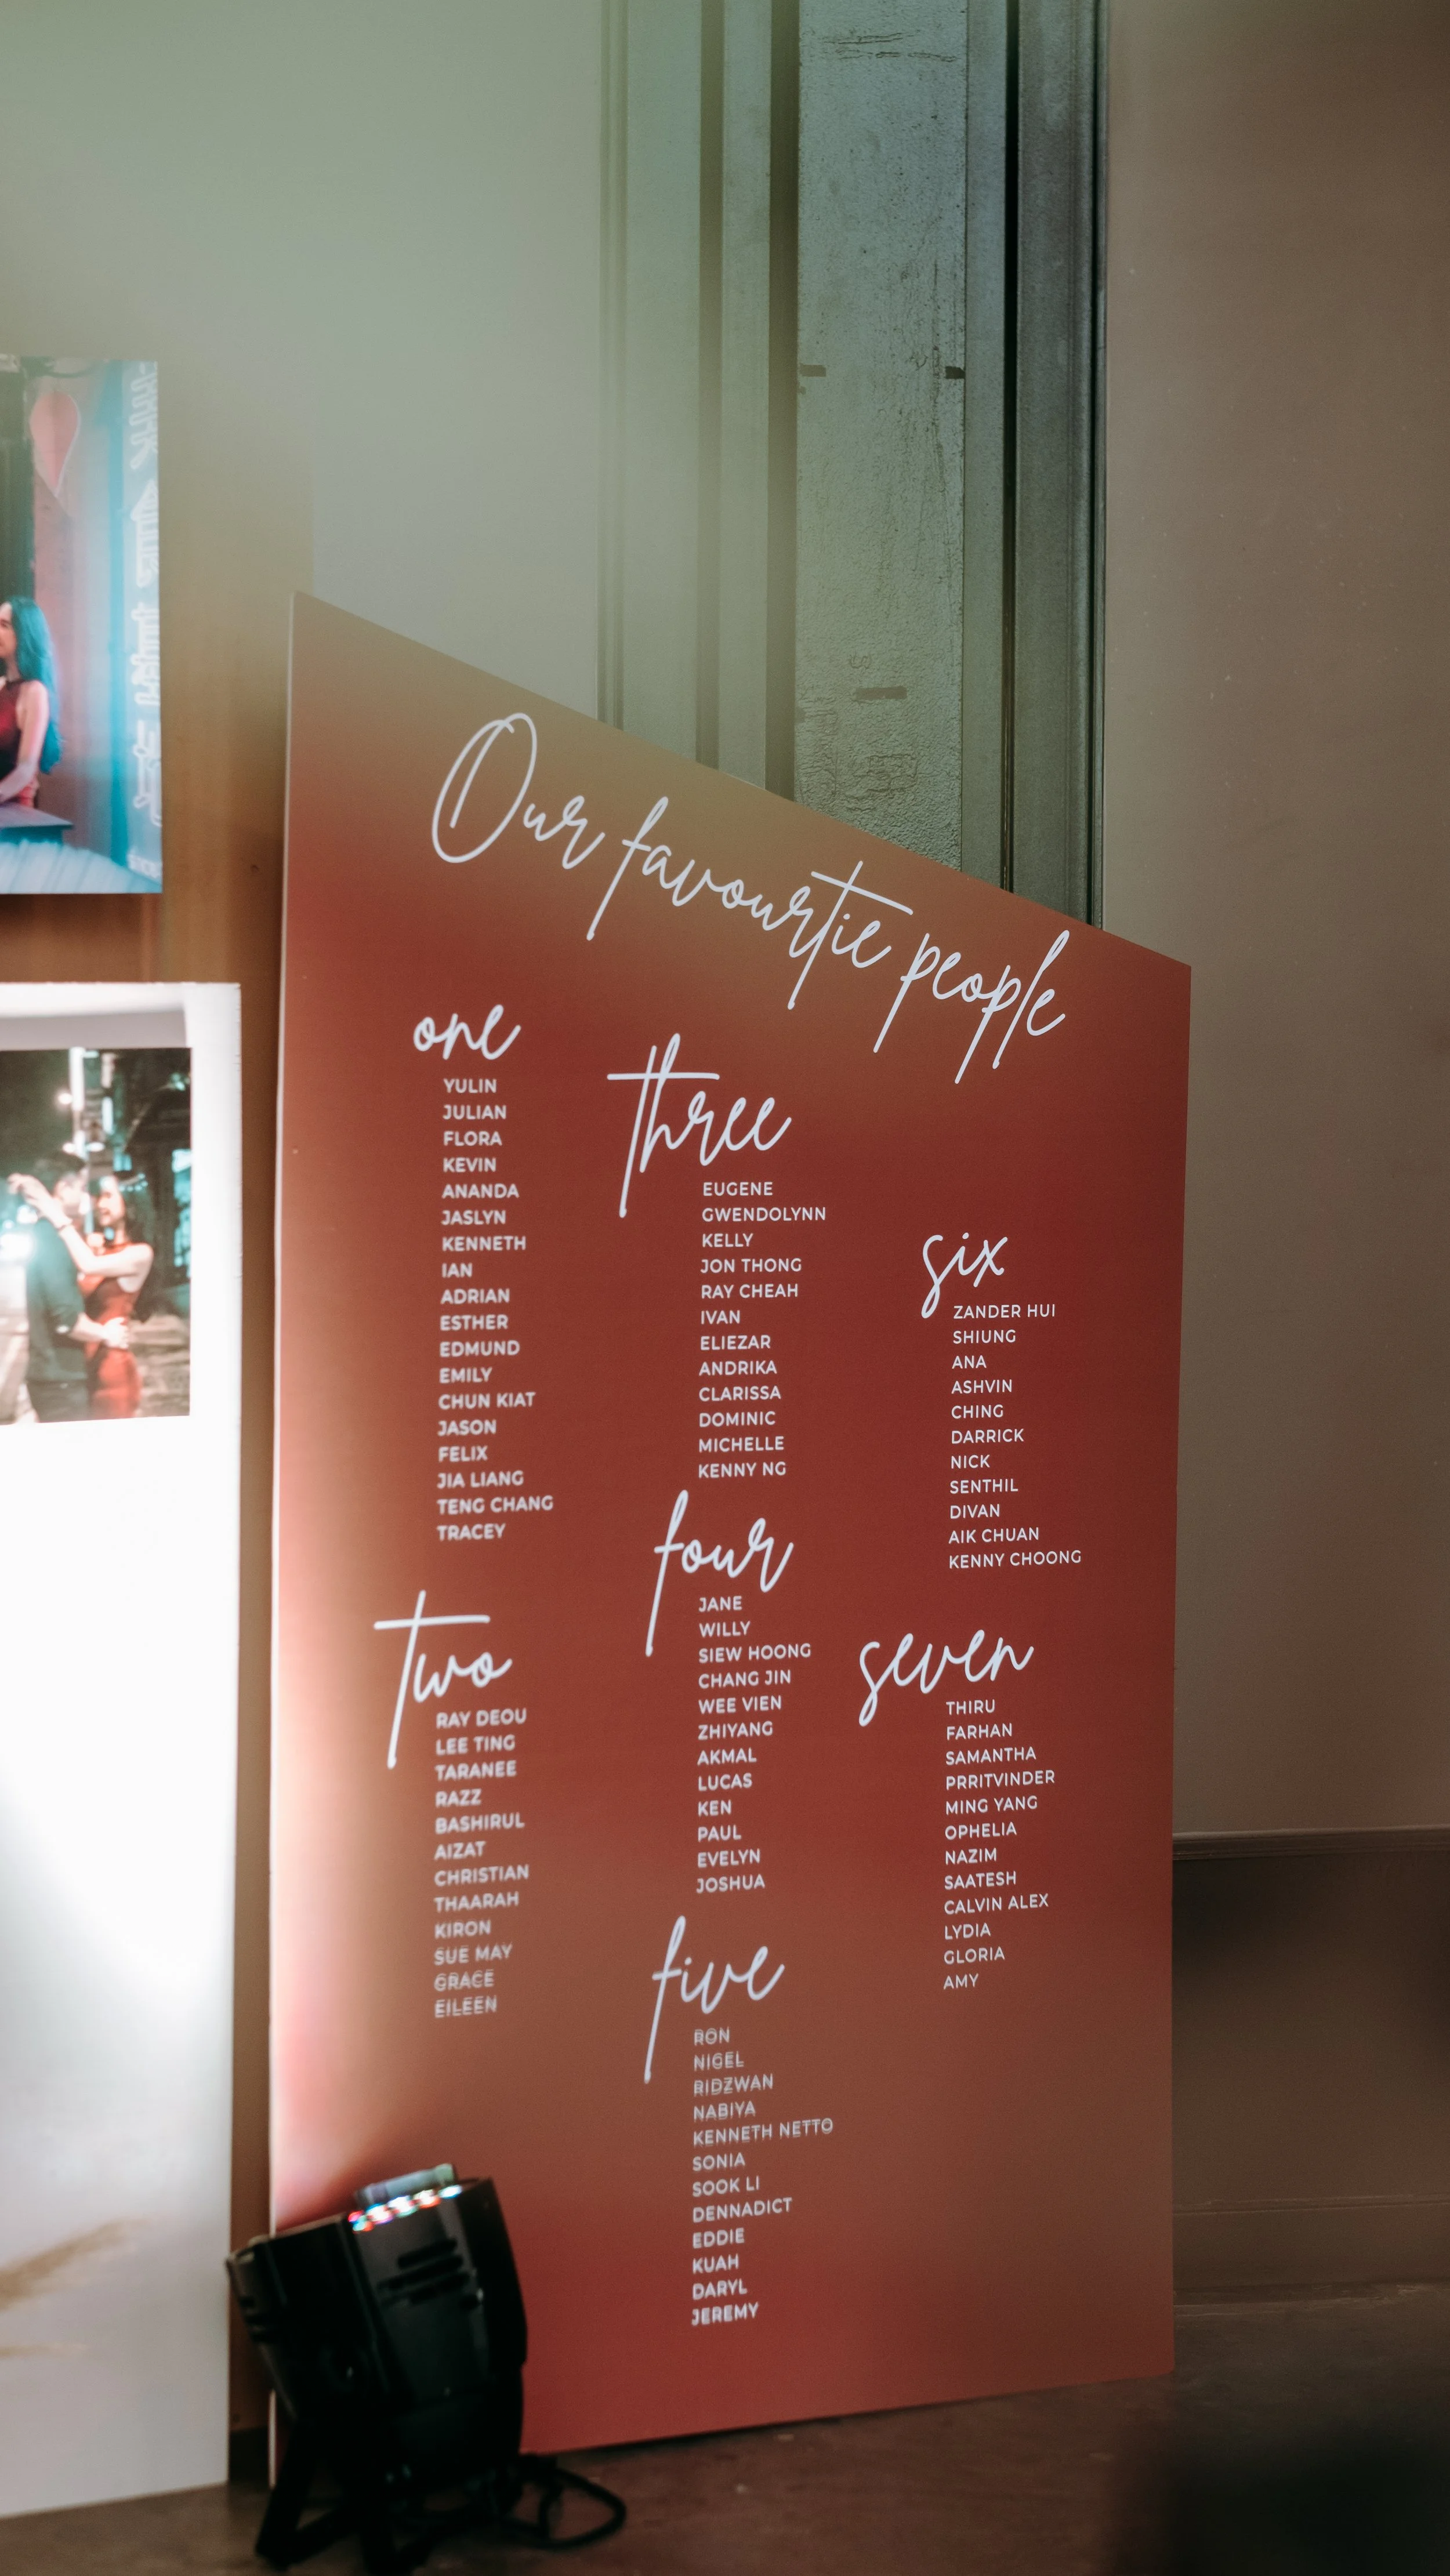 Our favourtie people
one
YULIN
JULIAN
FLORA
KEVIN
ANANDA
JASLYN
KENNETH
IAN
ADRIAN
ESTHER
EDMUND
EMILY
CHUN KIAT
JASON
FELIX
JIA LIANG
TENG CHANG
TRACEY
two
RAY DEOU
LEE TING
TARANEE
RAZZ
BASHIRUL
AIZAT
CHRISTIAN
THAARAH
KIRON
SUE MAY
GRACE
EILEEN
three
EUGENE
GWENDOLYNN
KELLY
JON THONG
RAY CHEAH
IVAN
ELIEZAR
ANDRIKA
CLARISSA
DOMINIC
MICHELLE
KENNY NG
four
JANE
WILLY
SIEW HOONG
CHANG JIN
WEE VIEN
ZHIYANG
AKMAL
LUCAS
KEN
PAUL
EVELYN
JOSHUA
five
RON
NIGEL
RIDZWAN
NABIYA
KENNETH NETTO
SONIA
SOOK LI
DENNADICT
EDDIE
KUAH
DARYL
JEREMY
six
ZANDER HUI
SHIUNG
ANA
ASHVIN
CHING
DARRICK
NICK
SENTHIL
DIVAN
AIK CHUAN
KENNY CHOONG
seven
THIRU
FARHAN
SAMANTHA
PRRITVINDER
MING YANG
OPHELIA
NAZIM
SAATESH
CALVIN ALEX
LYDIA
GLORIA
AMY